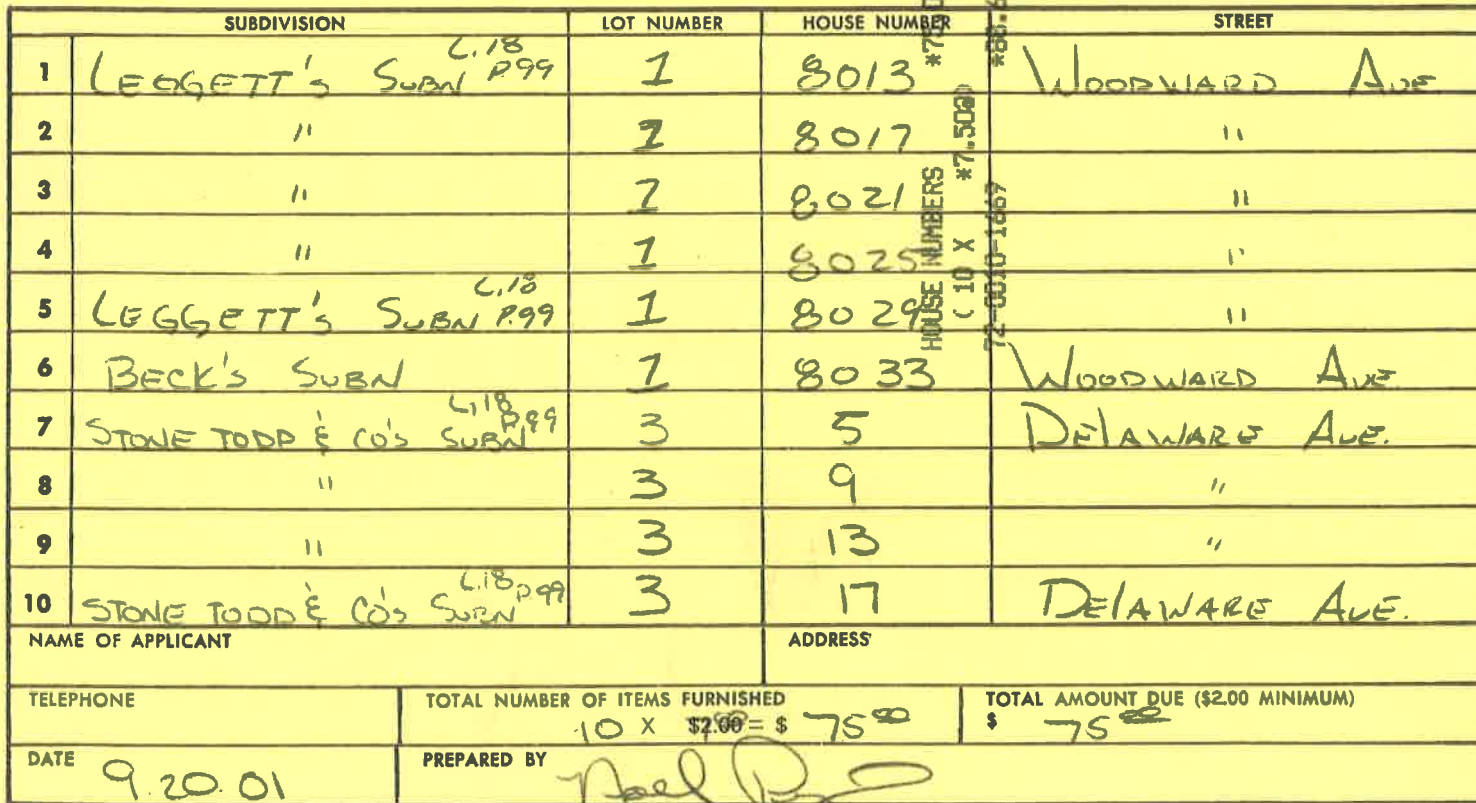 SUBDIVISION LOT NUMBER HOUSE NUMBER STREET
1 LEGGETT's SUBN L.18 P.99 1 8013 WOODWARD AVE
2 " 1 8017 "
3 " 1 8021 "
4 " 1 8025 "
5 LEGGETT's SUBN L.18 P.99 1 8029 "
6 BECK's SUBN 1 8033 WOODWARD AVE.
7 STONE TODD & CO'S SUBN L.18 P.99 3 5 DELAWARE AVE.
8 " 3 9 "
9 " 3 13 "
10 STONE TODD & CO'S SUBN L.18 P.99 3 17 DELAWARE AVE.
HOUSE NUMBERS
( 10 X *7.50@)
72-0010-1669
NAME OF APPLICANT ADDRESS
TELEPHONE TOTAL NUMBER OF ITEMS FURNISHED TOTAL AMOUNT DUE ($2.00 MINIMUM)
10 X $2.00 = $ 75 00 $ 75 00
DATE PREPARED BY
9.20.01 Noel